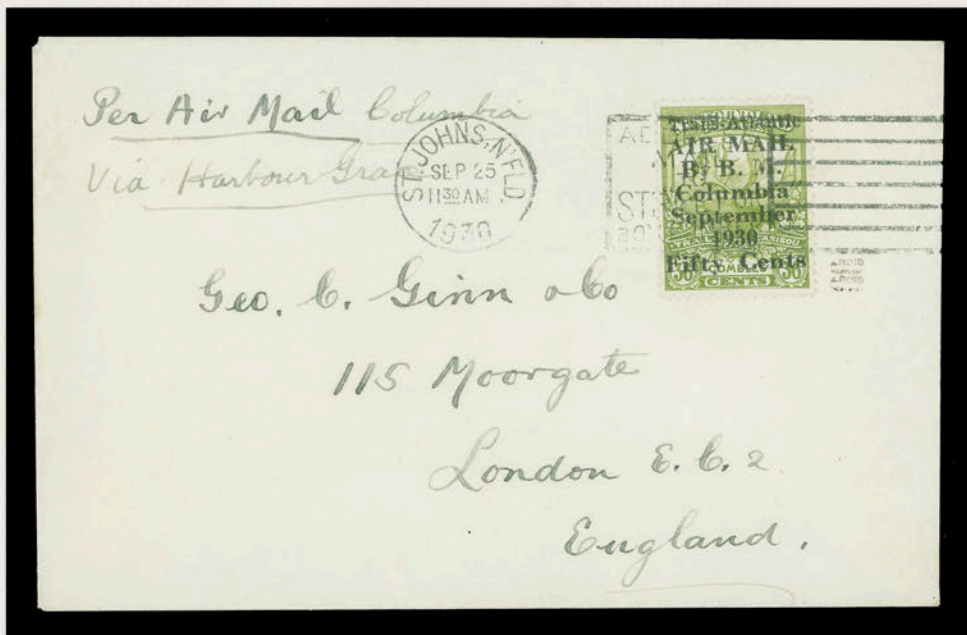 Per Air Mail Columbia
Via Harbour Grace
ST. JOHNS, N'FLD.
SEP 25
11 30 AM
1930
Trans-Atlantic
AIR MAIL
By B. M.
"Columbia"
September
1930
Fifty Cents
36 36
CENTS
Geo. C. Ginn & Co
115 Moorgate
London E.C. 2
England.